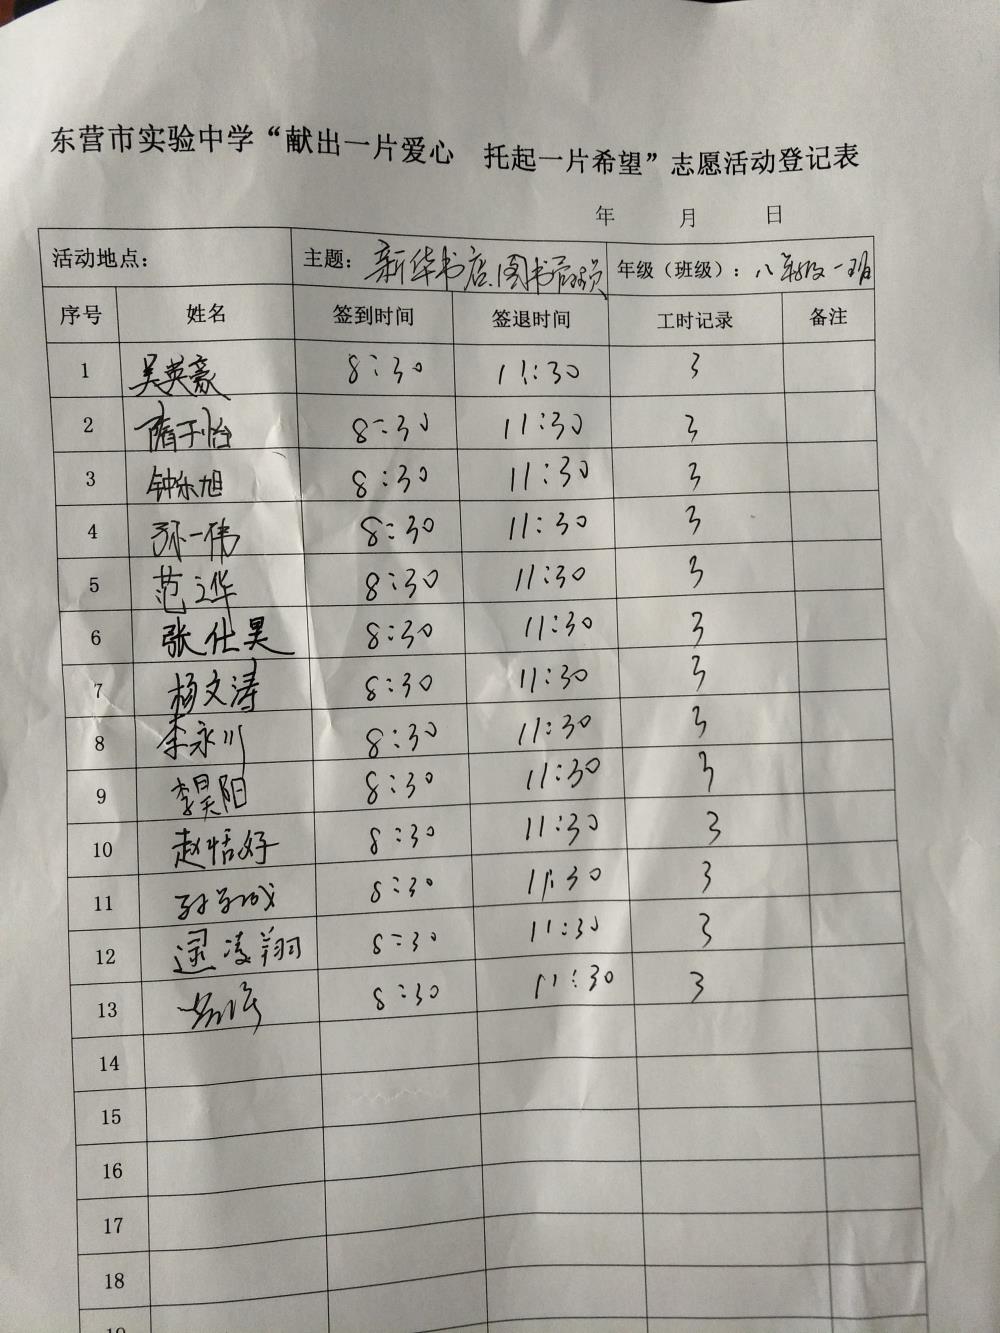 东营市实验中学“献出一片爱心 托起一片希望”志愿活动登记表
年 月 日
活动地点： 主题：新华书店.图书管理员 年级（班级）：八年级一班
序号 姓名 签到时间 签退时间 工时记录 备注
1 吴英豪 8:30 11:30 3
2 隋于怡 8:30 11:30 3
3 钟乐旭 8:30 11:30 3
4 孙一伟 8:30 11:30 3
5 范立华 8:30 11:30 3
6 张仕昊 8:30 11:30 3
7 杨文涛 8:30 11:30 3
8 李永川 8:30 11:30 3
9 李昊阳 8:30 11:30 3
10 赵恬好 8:30 11:30 3
11 8:30 11:30 3
12 逯凌翔 8:30 11:30 3
13 8:30 11:30 3
14
15
16
17
18
19